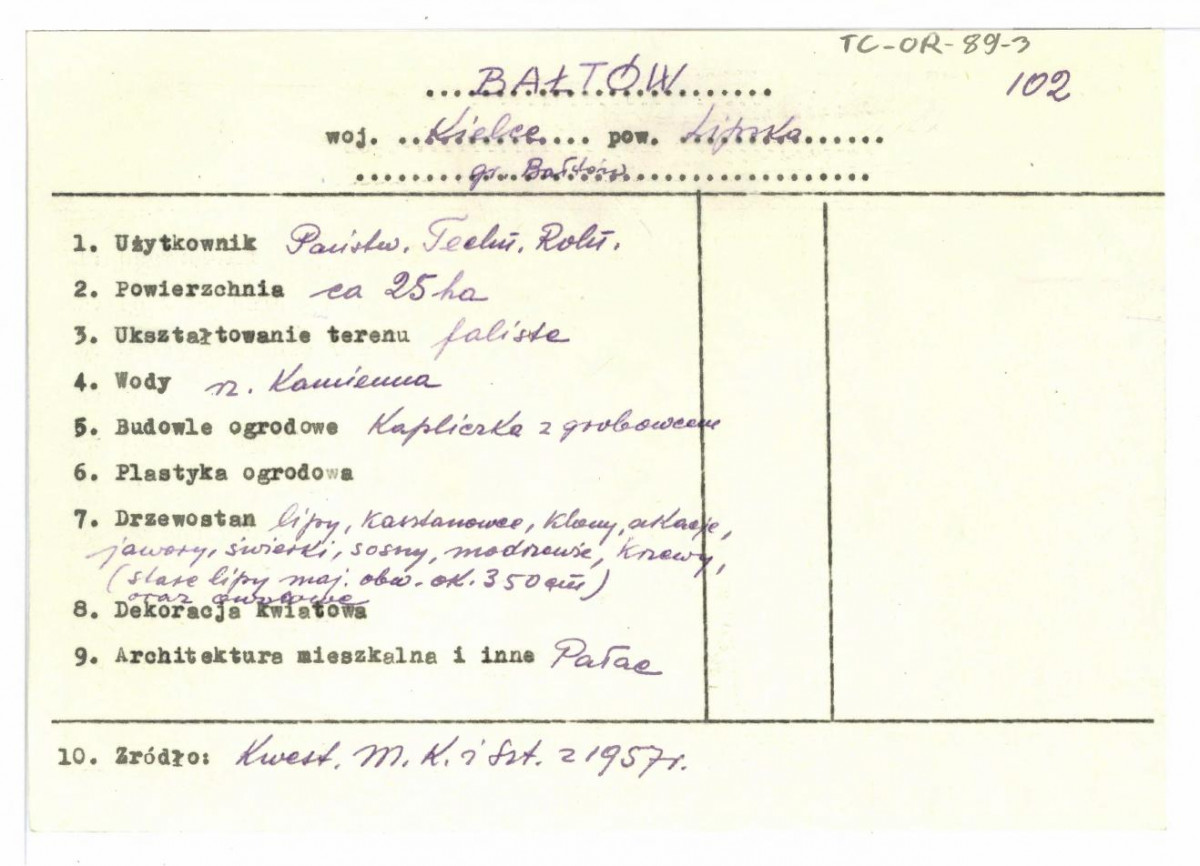 TC-OR-89-3
BAŁTÓW
102
woj. Kielce pow. Lipska
gr. Bałtów
1. Użytkownik Państw. Techn. Roln.
2. Powierzchnia ca 25 ha
3. Ukształtowanie terenu faliste
4. Wody rz. Kamienna
5. Budowle ogrodowe Kapliczka z grobowcem
6. Plastyka ogrodowa
7. Drzewostan lipy, kasztanowce, klony, akacje,
jawory, świerki, sosny, modrzewie, krzewy,
(stare lipy maj. obw. ok. 350 cm)
oraz owocowe
8. Dekoracja kwiatowa
9. Architektura mieszkalna i inne Pałac
10. Zródło: Kwest. M. K. i Szt. z 1957 r.